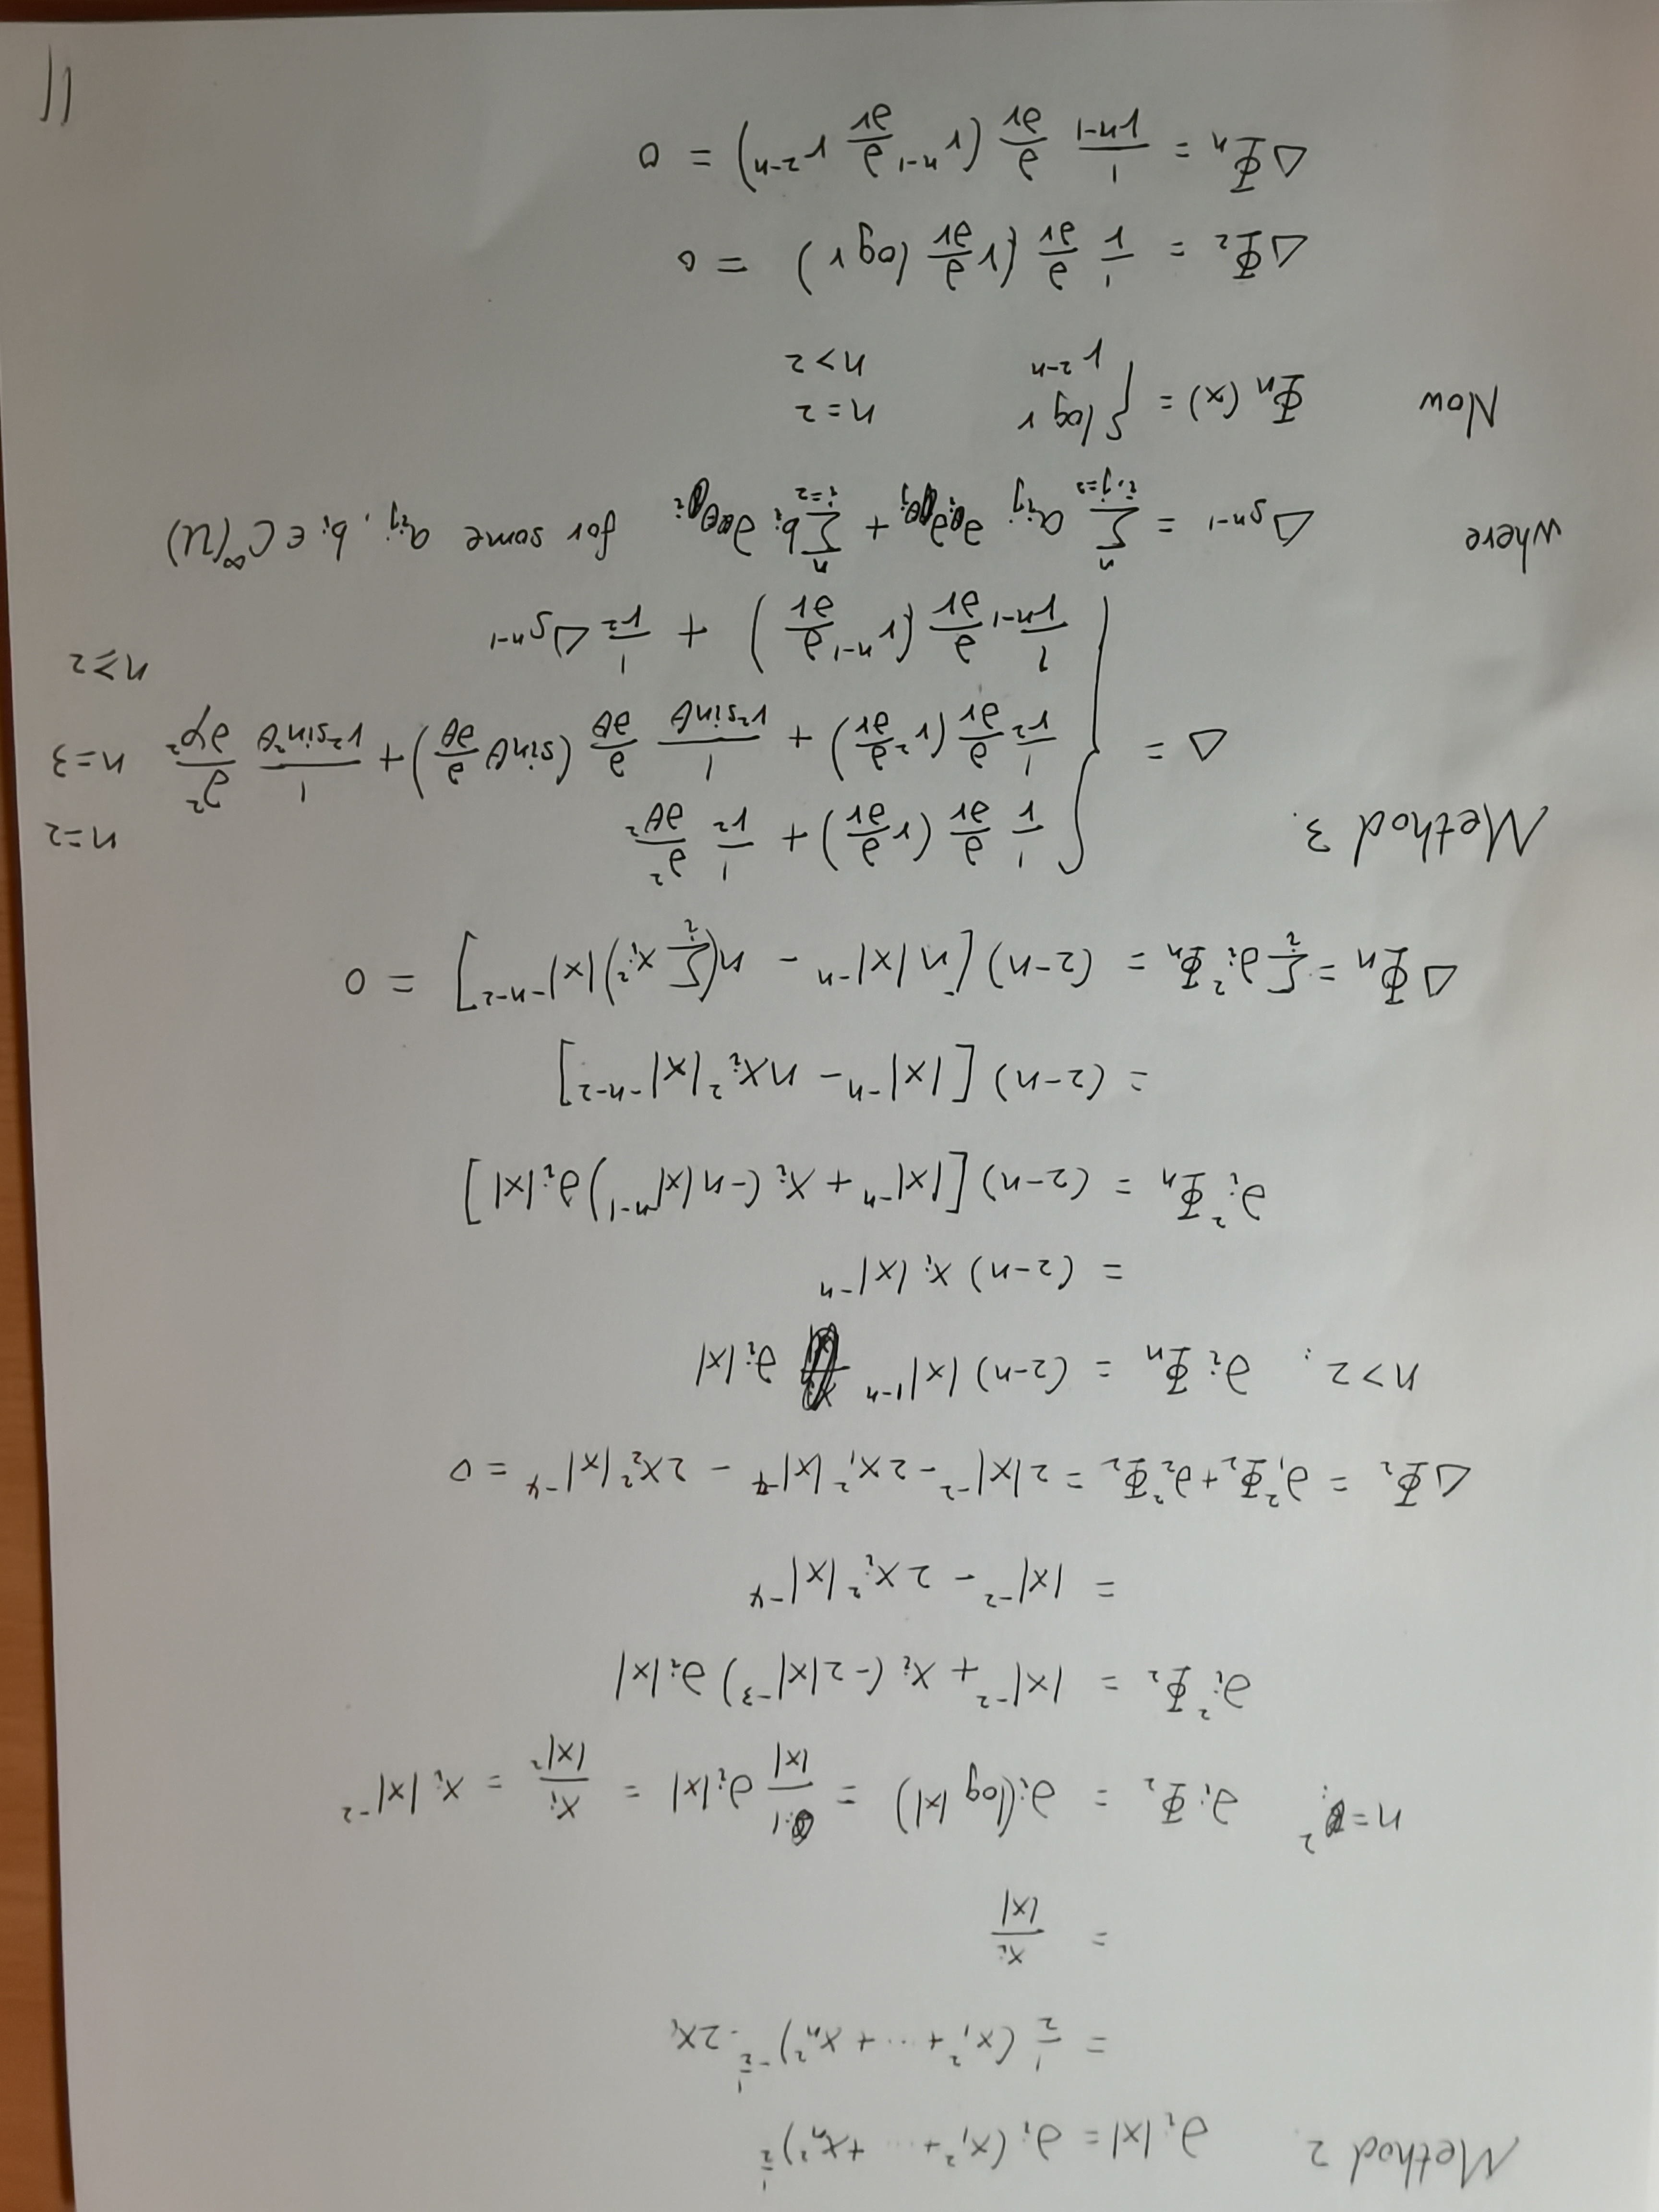 Method 2. ∂ᵢ|x| = ∂ᵢ(x₁² + ⋯ + xₙ²)^{1/2}
= 1/2 (x₁² + ⋯ + xₙ²)^{-1/2} · 2xᵢ
= xᵢ/|x|
n=2: ∂ᵢΦ₂ = ∂ᵢ(log|x|) = 1/|x| ∂ᵢ|x| = xᵢ/|x|² = xᵢ|x|^{-2}
∂ᵢ²Φ₂ = |x|^{-2} + xᵢ(-2|x|^{-3})∂ᵢ|x|
= |x|^{-2} - 2xᵢ²|x|^{-4}
△Φ₂ = ∂₁²Φ₂ + ∂₂²Φ₂ = 2|x|^{-2} - 2x₁²|x|^{-4} - 2x₂²|x|^{-4} = 0
n>2: ∂ᵢΦₙ = (2-n)|x|^{1-n} ∂ᵢ|x|
= (2-n)xᵢ|x|^{-n}
∂ᵢ²Φₙ = (2-n)[|x|^{-n} + xᵢ(-n|x|^{-n-1})∂ᵢ|x|]
= (2-n)[|x|^{-n} - nxᵢ²|x|^{-n-2}]
△Φₙ = ∑ᵢ ∂ᵢ²Φₙ = (2-n)[n|x|^{-n} - n(∑ᵢ xᵢ²)|x|^{-n-2}] = 0
Method 3. △ = { 1/r ∂/∂r (r ∂/∂r) + 1/r² ∂²/∂θ² n=2
1/r² ∂/∂r (r² ∂/∂r) + 1/(r² sinθ) ∂/∂θ (sinθ ∂/∂θ) + 1/(r² sin²θ) ∂²/∂φ² n=3
1/r^{n-1} ∂/∂r (r^{n-1} ∂/∂r) + 1/r² △_{S^{n-1}} n≥2
where △_{S^{n-1}} = ∑_{i,j=2}^{n} aᵢⱼ ∂_{θᵢ}∂_{θⱼ} + ∑_{i=2}^{n} bᵢ ∂_{θᵢ} for some aᵢⱼ, bᵢ ∈ C^∞(U)
Now Φₙ(x) = { log r n=2
r^{2-n} n>2
△Φ₂ = 1/r ∂/∂r (r ∂/∂r log r) = 0
△Φₙ = 1/r^{n-1} ∂/∂r (r^{n-1} ∂/∂r r^{2-n}) = 0
11